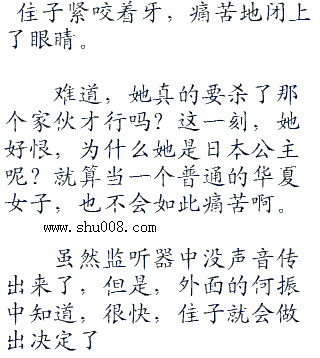 佳子紧咬着牙，痛苦地闭上
了眼睛。
难道，她真的要杀了那
个家伙才行吗？这一刻，她
好恨，为什么她是日本公主
呢？就算当一个普通的华夏
女子，也不会如此痛苦啊。
www.shu008.com
虽然监听器中没声音传
出来了，但是，外面的何振
中知道，很快，佳子就会做
出决定了